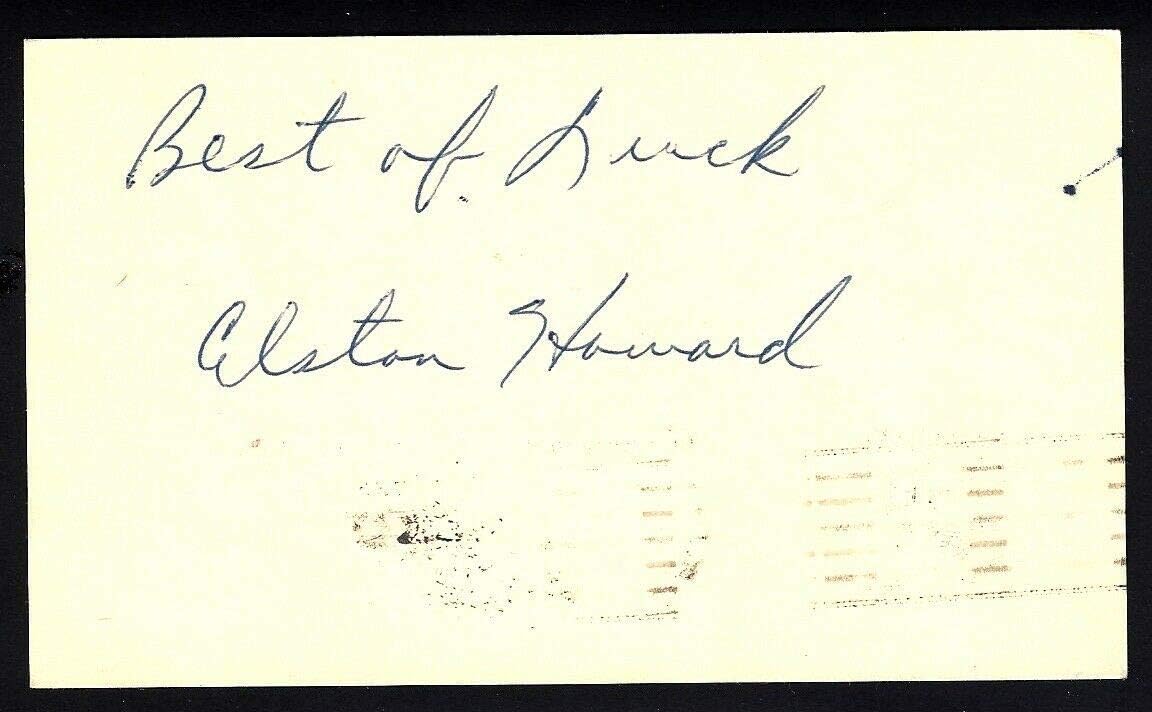 Best of Luck
Elston Howard